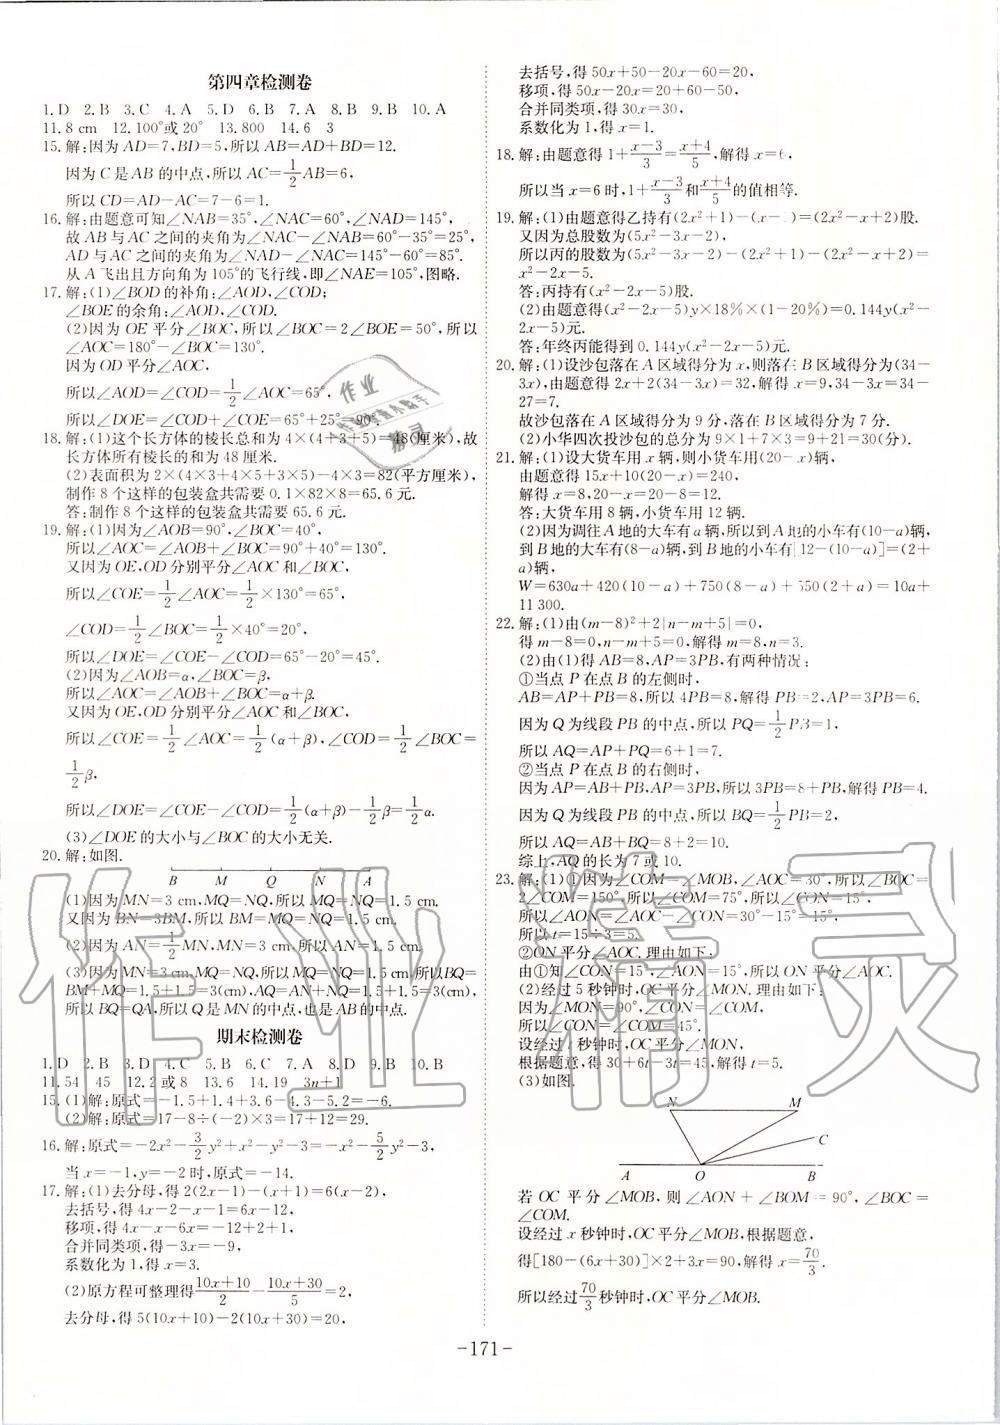 第四章检测卷
1.D 2.B 3.C 4.A 5.D 6.B 7.A 8.B 9.B 10.A
11.8 cm 12.100°或20° 13.800 14.6 3
15.解:因为AD=7,BD=5,所以AB=AD+BD=12.
因为C是AB的中点,所以AC=1/2AB=6,
所以CD=AD-AC=7-6=1.
16.解:由题意可知∠NAB=35°,∠NAC=60°,∠NAD=145°,
故AB与AC之间的夹角为∠NAC-∠NAB=60°-35°=25°,
AD与AC之间的夹角为∠NAD-∠NAC=145°-60°=85°.
从A飞出且方向角为105°的飞行线,即∠NAE=105°,图略.
17.解:(1)∠BOD的补角:∠AOD,∠COD;
∠BOE的余角:∠AOD,∠COD.
(2)因为OE平分∠BOC,所以∠BOC=2∠BOE=50°,所以
∠AOC=180°-∠BOC=130°.
因为OD平分∠AOC,
所以∠AOD=∠COD=1/2∠AOC=65°,
所以∠DOE=∠COD+∠COE=65°+25°=90°.
18.解:(1)这个长方体的棱长总和为4×(4+3+5)=48(厘米),故
长方体所有棱长的和为48厘米.
(2)表面积为2×(4×3+4×5+3×5)-4×3=82(平方厘米),
制作8个这样的包装盒共需要0.1×82×8=65.6元.
答:制作8个这样的包装盒共需要65.6元.
19.解:(1)因为∠AOB=90°,∠BOC=40°,
所以∠AOC=∠AOB+∠BOC=90°+40°=130°.
又因为OE,OD分别平分∠AOC和∠BOC,
所以∠COE=1/2∠AOC=1/2×130°=65°,
∠COD=1/2∠BOC=1/2×40°=20°,
所以∠DOE=∠COE-∠COD=65°-20°=45°.
(2)因为∠AOB=α,∠BOC=β,
所以∠AOC=∠AOB+∠BOC=α+β.
又因为OE,OD分别平分∠AOC和∠BOC,
所以∠COE=1/2∠AOC=1/2(α+β),∠COD=1/2∠BOC=
1/2β,
所以∠DOE=∠COE-∠COD=1/2(α+β)-1/2β=1/2α.
(3)∠DOE的大小与∠BOC的大小无关.
20.解:如图.
B M Q N A
(1)因为MN=3 cm,MQ=NQ,所以MQ=NQ=1.5 cm.
又因为BN=3BM,所以BM=MQ=NQ=1.5 cm.
(2)因为AN=1/2MN,MN=3 cm,所以AN=1.5 cm.
(3)因为MN=3 cm,MQ=NQ,所以MQ=NQ=1.5 cm,所以BQ=
BM+MQ=1.5+1.5=3(cm),AQ=AN+NQ=1.5+1.5=3(cm),
所以BQ=QA,所以Q是MN的中点,也是AB的中点.
期末检测卷
1.D 2.B 3.D 4.C 5.B 6.C 7.A 8.D 9.C 10.B
11.54 45 12.2或8 13.6 14.19 3n+1
15.(1)解:原式=-1.5+1.4+3.6-4.3-5.2=-6.
(2)解:原式=17-8÷(-2)×3=17+12=29.
16.解:原式=-2x²-3/2y²+x²-y²-3=-x²-5/2y²-3,
当x=-1,y=-2时,原式=-14.
17.解:(1)去分母,得2(2x-1)-(x+1)=6(x-2),
去括号,得4x-2-x-1=6x-12,
移项,得4x-x-6x=-12+2+1,
合并同类项,得-3x=-9,
系数化为1,得x=3.
(2)原方程可整理得(10x+10)/2-(10x+30)/5=2,
去分母,得5(10x+10)-2(10x+30)=20,
去括号,得50x+50-20x-60=20,
移项,得50x-20x=20-50+60,
合并同类项,得30x=30,
系数化为1,得x=1.
18.解:由题意得1+(x-3)/3=(x+4)/5,解得x=6,
所以当x=6时,1+(x-3)/3和(x+4)/5的值相等.
19.解:(1)由题意得乙持有(2x²+1)-(x- )=(2x²-x+2)股.
又因为总股数为(5x²-3x-2),
所以丙的股数为(5x²-3x-2)-(2x²+1)-(2x²-x+2)=
x²-2x-5.
答:丙持有(x²-2x-5)股.
(2)由题意得(x²-2x-5)y×18%×(1-20%)=0.144y(x²-
2x-5)元.
答:年终丙能得到0.144y(x²-2x-5)元.
20.解:(1)设沙包落在A区域得分为x,则落在B区域得分为(34-
3x),由题意得2x+2(34-3x)=32,解得x=9,34-3x=34-
27=7.
故沙包落在A区域得分为9分,落在B区域得分为7分.
(2)小华四次投沙包的总分为9×1+7×3=9+21=30(分).
21.解:(1)设大货车用x辆,则小货车用(20-x)辆,
由题意得15x+10(20-x)=240,
解得x=8,20-x=20-8=12.
答:大货车用8辆,小货车用12辆.
(2)因为调往A地的大车有a辆,所以到A地的小车有(10-a)辆,
到B地的大车有(8-a)辆,到B地的小车有[12-(10-a)]=(2+
a)辆,
W=630a+420(10-a)+750(8-a)+550(2+a)=10a+
11 300.
22.解:(1)由(m-8)²+2|n-m+5|=0,
得m-8=0,n-m+5=0,解得m=8,n=3.
(2)由(1)得AB=8,AP=3PB,有两种情况:
①当点P在点B的左侧时,
AB=AP+PB=8,所以4PB=8,解得PB=2,AP=3PB=6.
因为Q为线段PB的中点,所以PQ=1/2PB=1,
所以AQ=AP+PQ=6+1=7.
②当点P在点B的右侧时,
因为AP=AB+PB,AP=3PB,所以3PB=8+PB,解得PB=4.
因为Q为线段PB的中点,所以BQ=1/2PB=2,
所以AQ=AB+BQ=8+2=10.
综上,AQ的长为7或10.
23.解:(1)①因为∠COM=∠MOB,∠AOC=30°,所以∠BOC=
2∠COM=150°,所以∠COM=75°,所以∠CON=15°,
所以∠AON=∠AOC-∠CON=30°-15°=15°,
所以t=15÷3=5.
②ON平分∠AOC.理由如下:
由①知∠CON=15°,∠AON=15°,所以ON平分∠AOC.
(2)经过5秒钟时,OC平分∠MON.理由如下:
因为∠MON=90°,∠CON=∠COM,
所以∠CON=∠COM=45°.
设经过t秒钟时,OC平分∠MON,
根据题意,得30+6t-3t=45,解得t=5.
(3)如图.
N M
C
A O B
若OC平分∠MOB,则∠AON+∠BOM=90°,∠BOC=
∠COM.
设经过x秒钟时,OC平分∠MOB,根据题意,
得[180-(6x+30)]×2+3x=90,解得x=70/3.
所以经过70/3秒钟时,OC平分∠MOB.
-171-
作业精灵